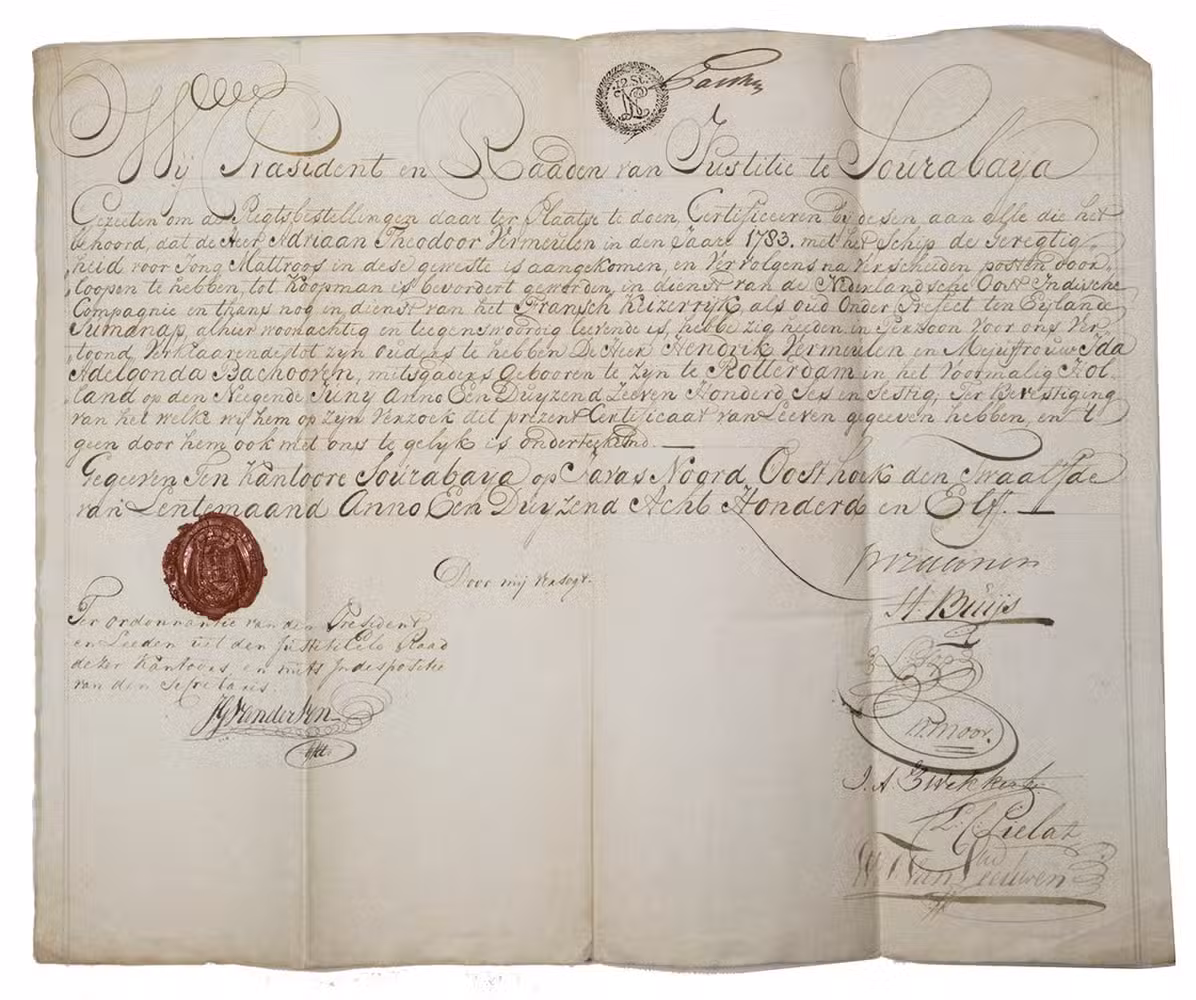 12 St.
Wij Prasident en Raaden van Justitie te Sourabaya
Gezeeten om de Regtsbestellingen daar ter Plaatse te doen, Certificeeren by desen, aan alle die het
behoord, dat de Heer Adriaan Theodoor Vermeulen in den Jaare 1783. met het Schip de Geregtig-
heid voor Jong Mattroos in dese geweste is aangekomen, en Vervolgens na Verscheiden posten door-
loopen te hebben, tot Koopman is bevordert geworden, in dienst van de Nederlandsche Oost Indische
Compagnie en thans nog in dienst van het Fransch Keizerryk, als oud Onder Prefect ten Eylande
Sumanap, alhier woonachtig en teegenswoordig leevende is, hebbe zig heeden in Persoon Voor ons Ver-
toond, Verklaarende tot zyn ouders te hebben De Heer Hendrik Vermeulen en Mejuffrouw Ida
Adelgonda Bachooven, mitsgaders Gebooren te Zyn te Rotterdam in het Voormalig Hol-
land op den Neegende Juny Anno Een Duyzend Zeeven Honderd Ses en Sestig, Ter Bevestiging
van het welke wij hem op zyn Verzoek dit prezent Certificaat van Leeven gegeeven hebben, en 't
geen door hem ook met ons te gelyk is onderteekend.
Gegeeven Ten Kantoore Sourabaya op Javas Noord Oosthoek den Twaalfde
van Lentemaand Anno Een Duyzend Acht Honderd en Elf.
Door mij versogt.
H. Buijs
Ter ordonnantie van den President
en Leeden uit den Justitieele Raad
dezer Kantoore, en mits Indespositie
van den Secretaris.
N. Moor.
J. A. Zwekkert
Pielat
W. Van Leeuwen